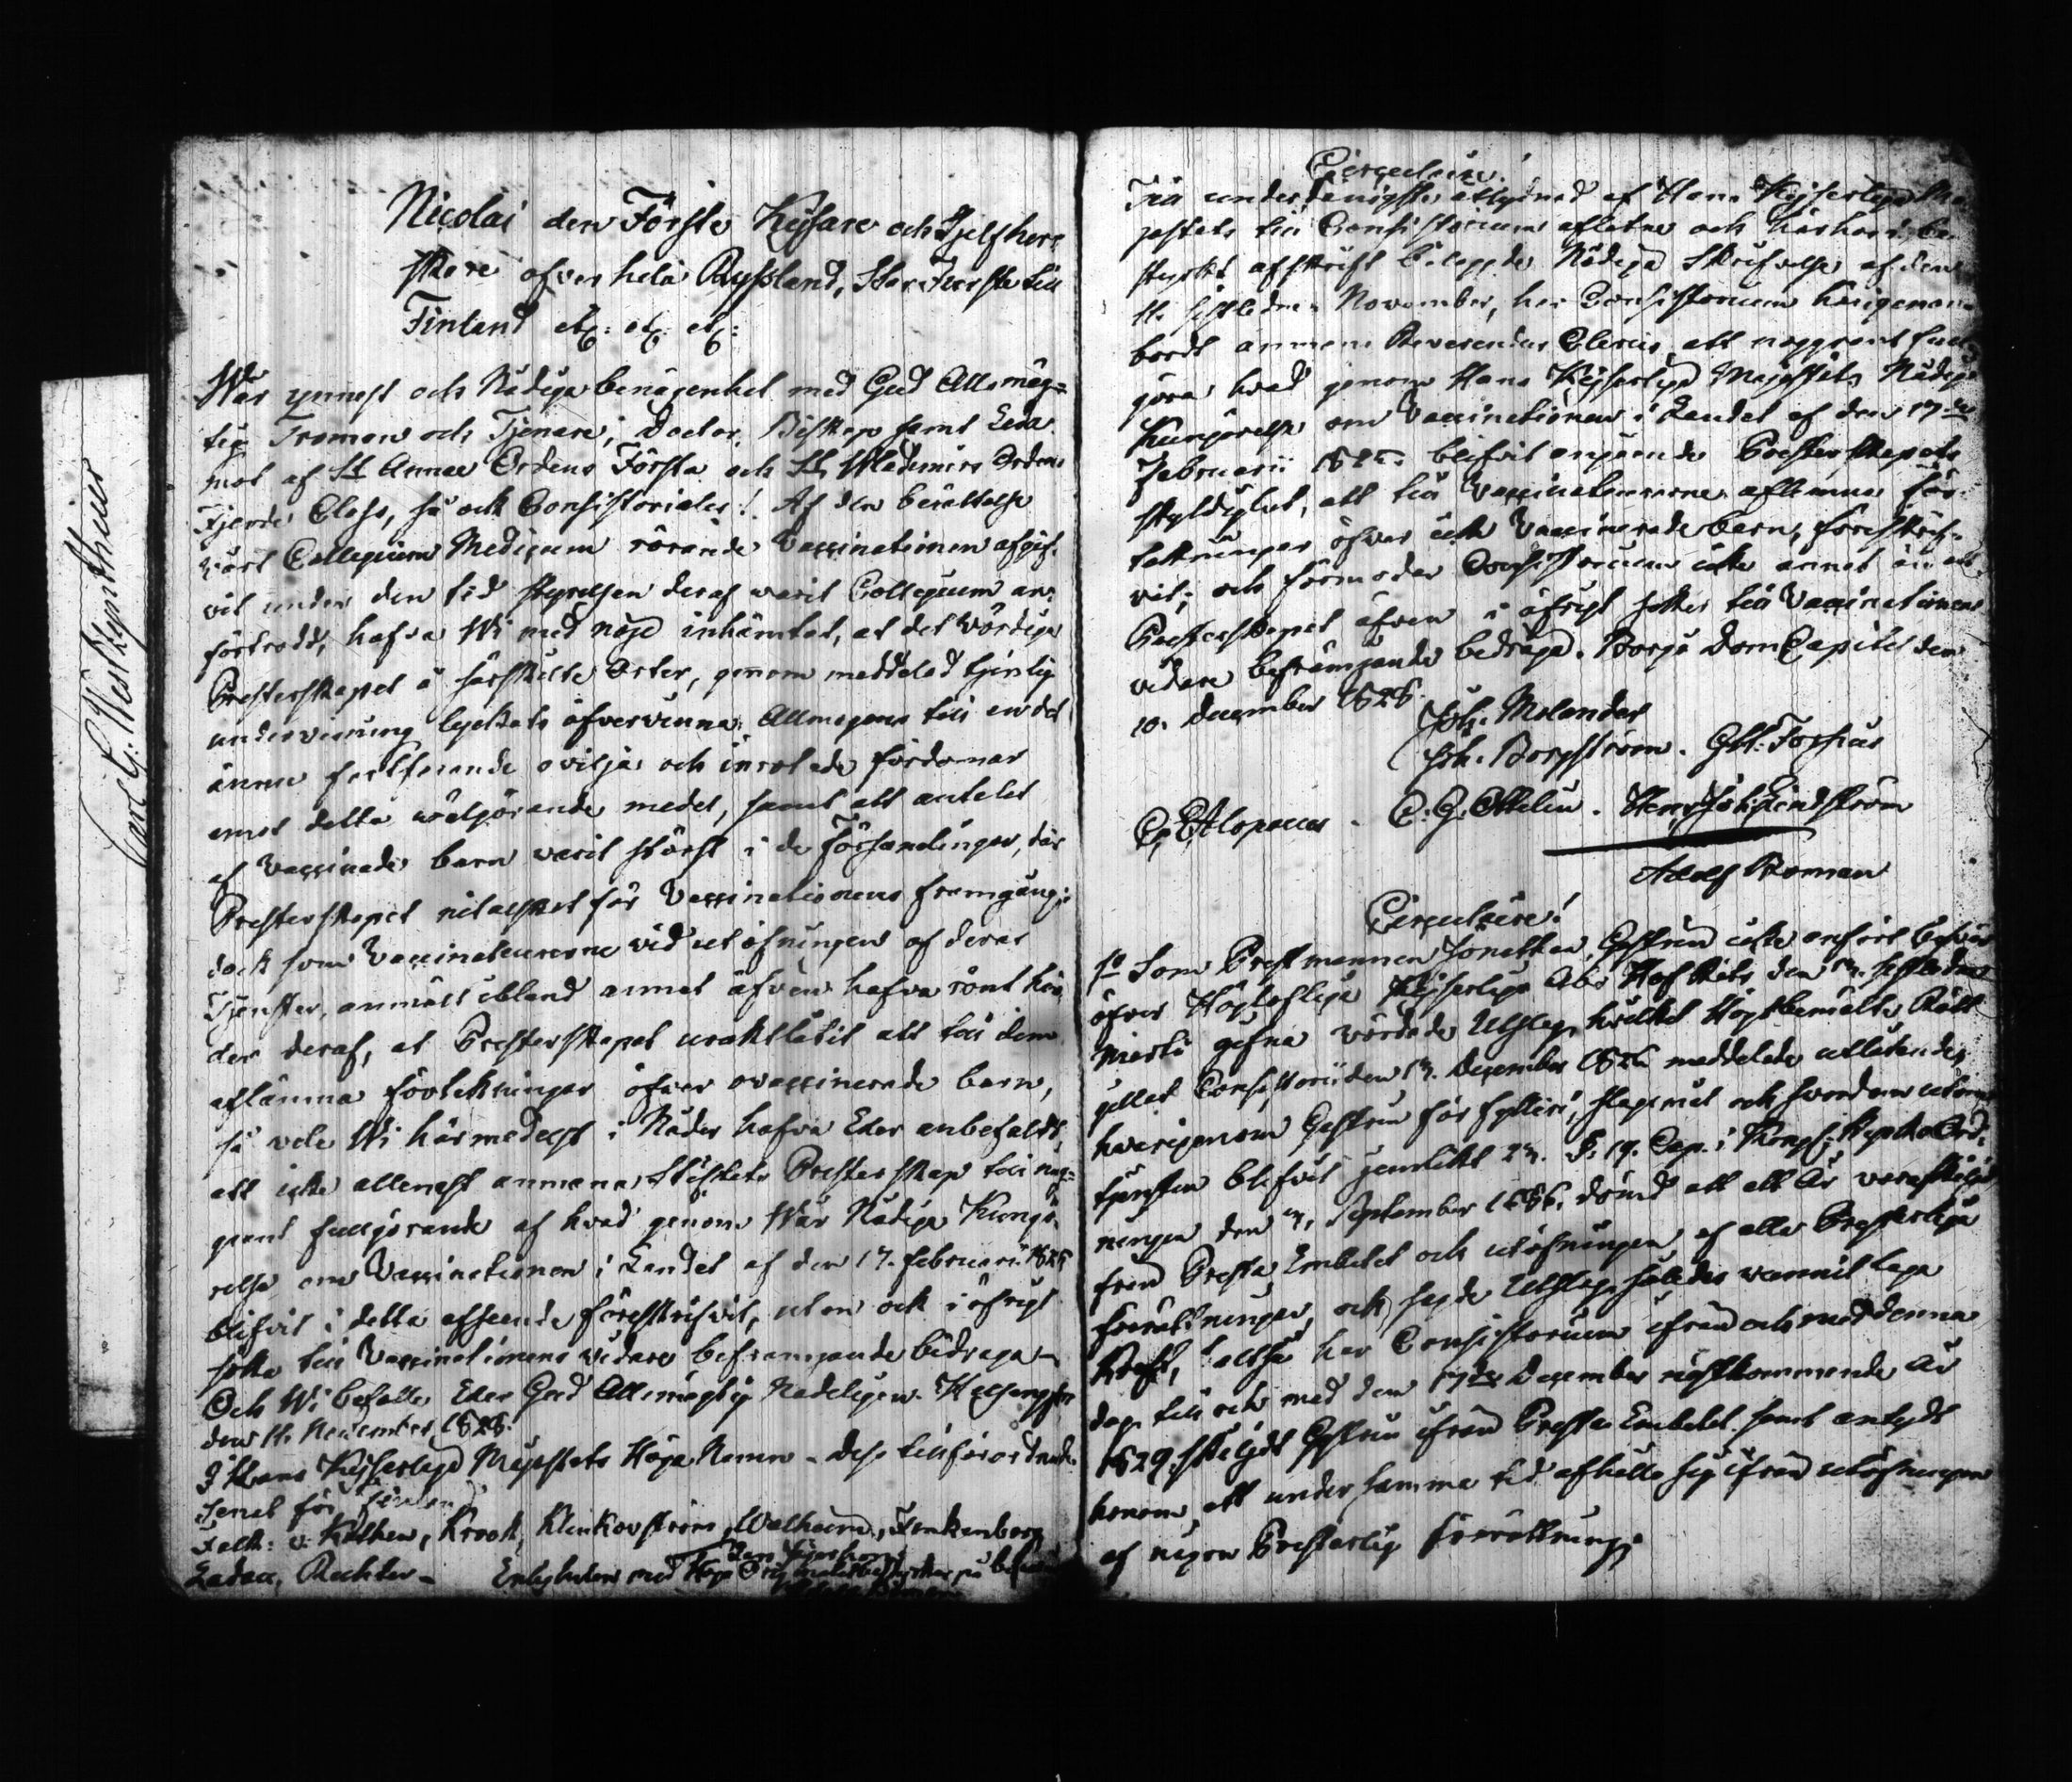 Nicolai den Förste Kejsare och Sjelfherr
skare öfver hela Ryssland, Stor Furste till
Finland etc: etc: etc:
Wår ynnest och Nådiga benägenhet med Gud Allsmäg=
tig Troman och Tjenare, Doctor, Biskop samt Leda
mot af St Annae Ordens Första och St Wladimirs Ordens
Fjerde Class, så ock Consistoriales! Af den berättelse
vårt Collegium Medicum rörande Vaccinationen afgif-
vit under den tid styrelsen deraf warit Collegium an-
förtrodd, hafva Wi med nöje inhämtat, at det Wördiga
Presterskapet å särskilte Orter, genom meddelad tjenlig
undervisning lyckats öfvervinna Allmogens till en del
ännu fortfarande ovilja och inrotade fördomar
emot detta wälgörande medel, samt att antalet
af Vaccinerade barn varit störst i de Församlingar, där
Presterskapet nitälskat för Vaccinationens framgång;
dock som Vaccinateurerne vid utöfningen af deras
Tjenster, anmält ibland annat äfven hafva rönt hin
der deraf, at Presterskapet uraktlåtit att till dem
aflämna förtekningar öfver ovaccinerade barn,
så vele Wi härmedelst i Nåder hafva Eder anbefaldt,
att icke allenast anmana Stiftets Presterskap till nog=
grant fullgörande af hvad genom Wår Nådiga Kungö-
relse om Vaccinationen i Landet af den 17. Februarii 1825
blifvit i detta afseende föreskrifvit, utan ock i öfrigt
söka till Vaccinationens vidare befrämjande bidraga –
Och Wi befalle Eder Gud Allsmägtig Nådeligen. Helsingfors
den 11. November 1828.
I Hans Kejserliga Majestäts Höga Namn – Dess tillförordnade
Senat för Finland
Falk: v: Kothen, Krook, Klinkowström, Walheim, Funkenberg
Ladau, Richter – Enligheten med Höga Originalet bestyrker på befallning
Carl G: Westzynthius
Circulaire!
Till underdånigste åtlydnad af Hans Kejserliga Ma
jestäts till Consistorium aflåtne och härhos i be
styrkt afskrift bilagde Nådiga Skrifvelse af den
11. sistledne November, har Consistorium härigenom
bordt anmana Reverendus Clerus, att noggrant full
göra hvad genom Hans Kejserliga Majestäts Nådiga
Kungörelse om Vaccinationen i Landet af den 17de
Februarii 1825. blifvit angående Presterskapets
skyldighet, att till Vaccinateurerne aflemna för-
tekningar öfver icke Vaccinerade barn, föreskrif-
vit; och förmodar Consistorium icke annat än att
Presterskapet äfven i öfrigt söker till Vaccinationens
vidare befrämjande bidraga. Borgå DomCapitel den
10. December 1828.
Joh. Molander
Joh. Borgström. Gbl: Forsius
C. E. Alopaeus. C. G. Ottelin. Henr Joh: Lindström
Adolf Roman
Circulaire!
1o Som Prestmannen Jonathan Gestrin icke anfört besvär
öfver Höglofliga Kejserliga Åbo HofRätts den 17. sistledne
Martii gifna wördade Utslag, hvilket Högstbemälte Rätt
gillat Consistorii den 17. December 1826 meddelade utlåtande,
hvarigenom Gestrin för fylleri, slagsmål och svordom
tjensten blifvit jemlikt 2. §. 19. Cap. i Kongl: KyrkoOrd-
ningen den 3. September 1686. dömd att ett År vara skiljd
från Presta Embetet och utöfningen af alla Presterliga
förrättningar, och sagde Utslag således wunnit laga
Kraft, alltså har Consistorium ifrån och med denna
dag till och med den 17de December nästkommande År
1829. skiljdt Gestrin ifrån Presta Embetet samt antydt
honom, att under samma tid afhålla sig ifrån utöfningen
af någon Presterlig förrättning;